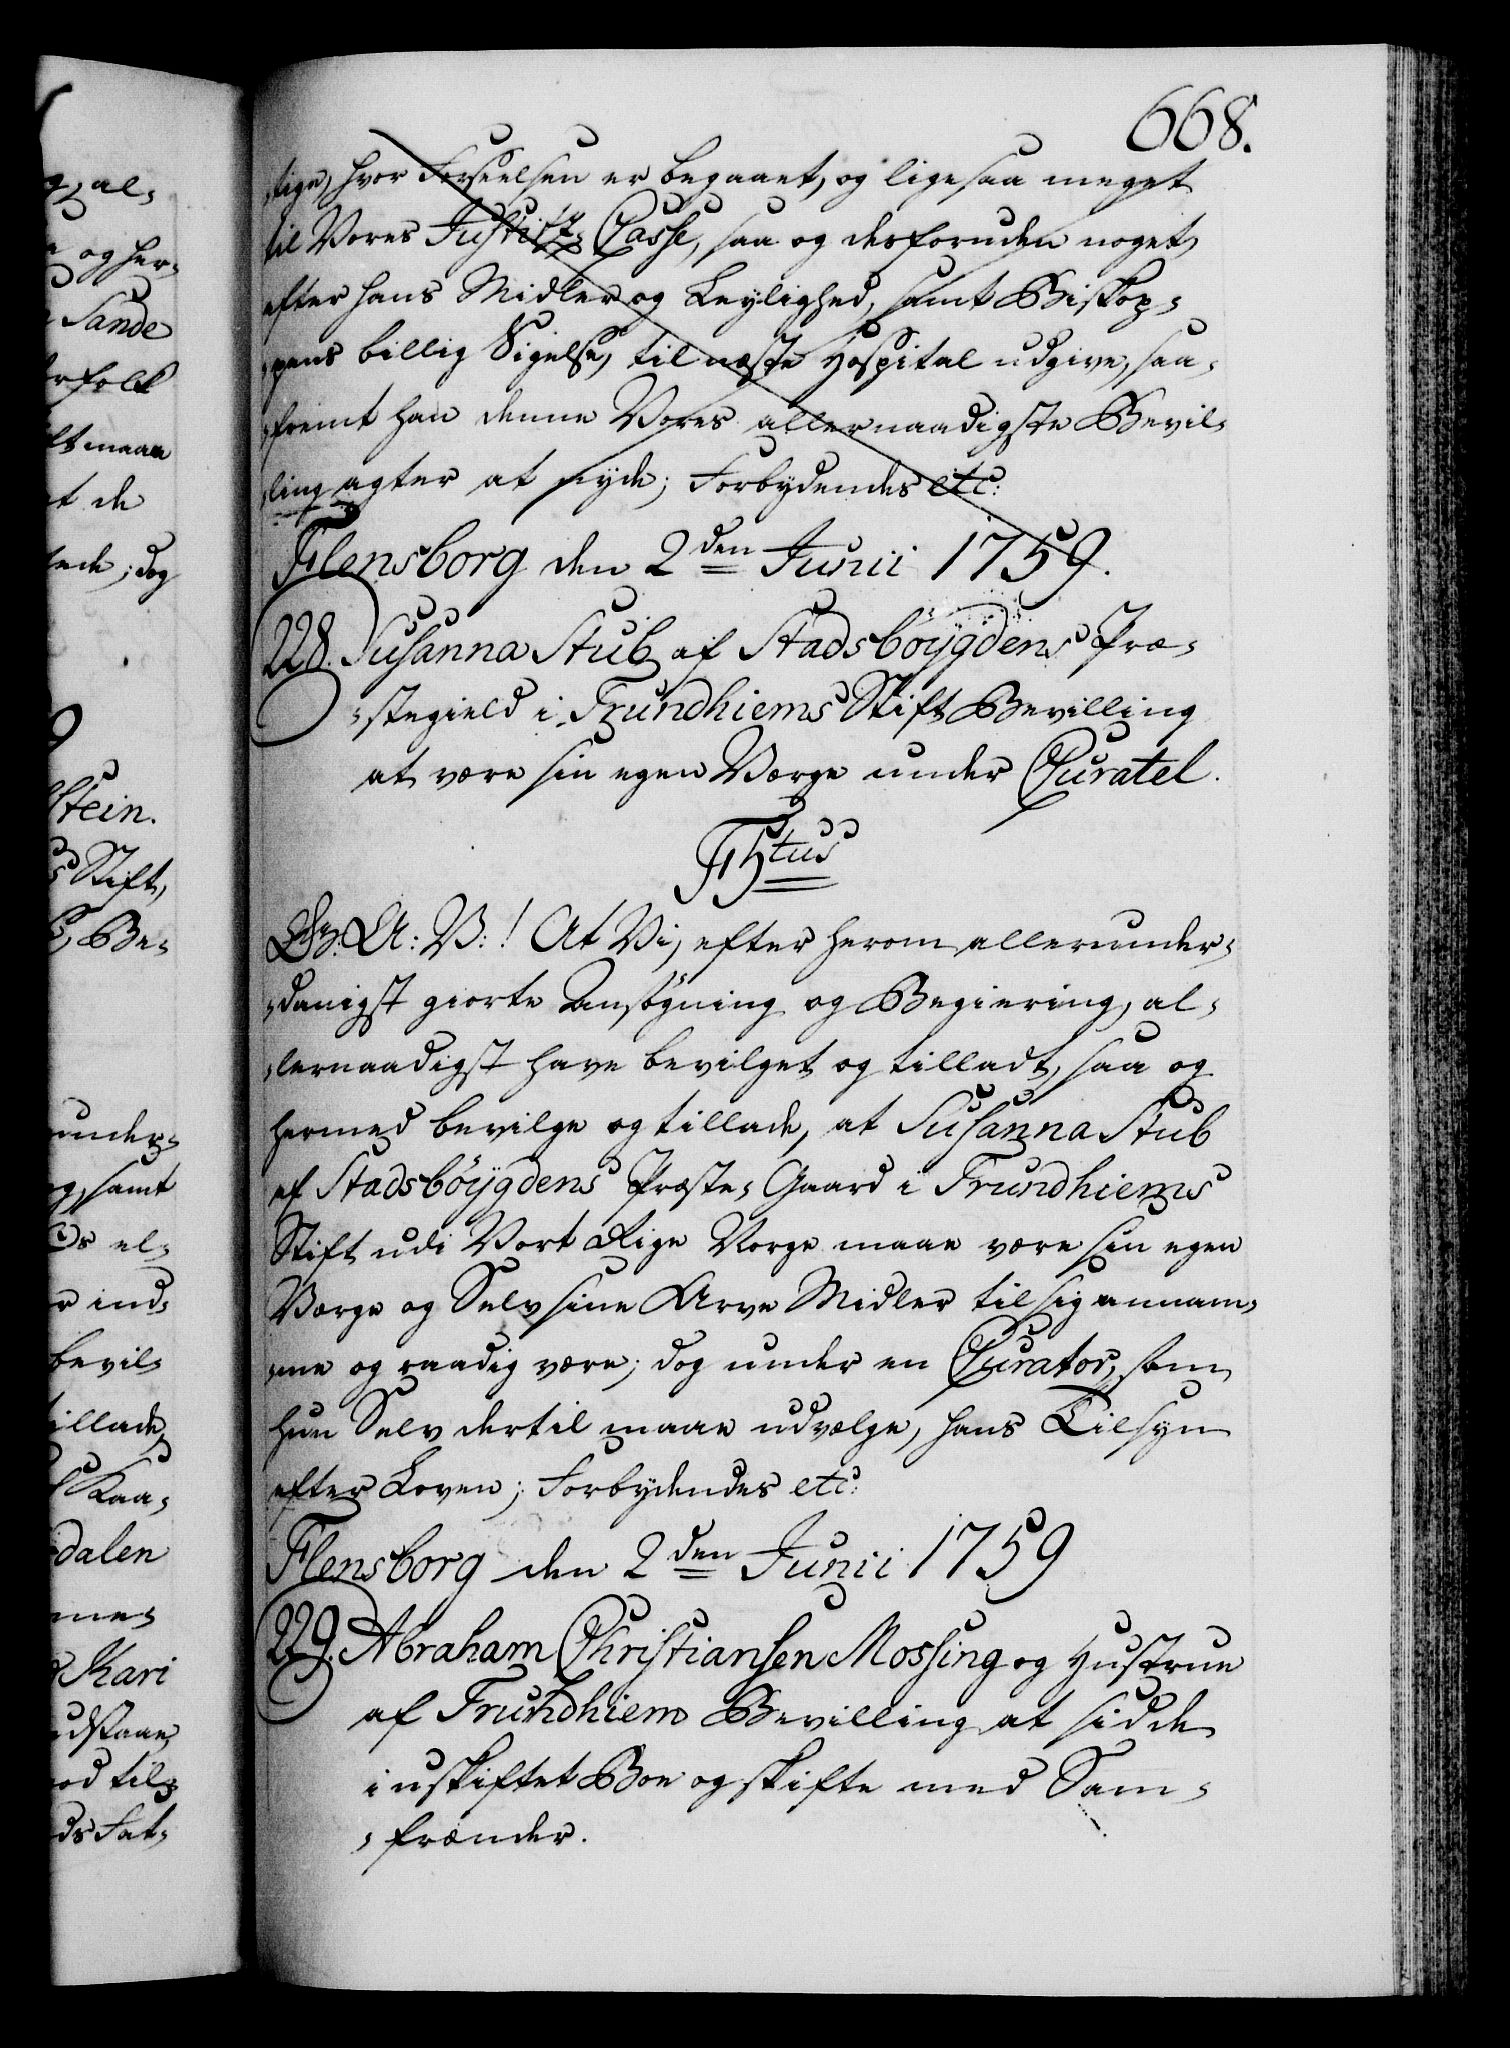 668.
tige, hvor Forseelsen er begaaet, og ligesaa meget
til Vores Justitz-Casse, saa og desforuden noget
efter hans Midler og Leylighed, samt Biskop-
-pens billig Sigelse, til næste Hospital udgive, saa-
-fremt han denne Vores allernaadigste Bevil-
-ling agter at nyde; Forbydendes etc:
Flensborg den 2den Junii 1759.
228. Susanna Stub af Stadsböygdens Præ-
-stegield i Trundhiems Stift Bevilling
at være sin egen Værge under Curatel.
F5tus
Gr: A: V:! At Vi, efter herom allerunder-
-danigst giorte Ansøgning og Begiering, al-
-lernaadigst have bevilget og tilladt, saa og
hermed bevilge og tillade, at Susanna Stub
af Stadsböygdens Præste-Gaard i Trundhiems
Stift udi Vort Rige Norge maae være sin egen
Værge og Selv sine Arve Midler til sig annam-
-me og raadig være; dog under en Curator, som
hun Selv dertil maae udvælge, hans Tilsyn
efter Loven; Forbydendes etc:
Flensborg den 2den Junii 1759
229. Abraham Christiansen Mossing og Hustrue
af Trundhiem Bevilling at sidde
i uskiftet Boe og skifte med Sam-
-frænder.